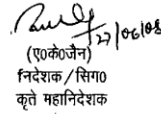 27/06/08
(ए०के०जैन)
निदेशक/सिग०
कृते महानिदेशक